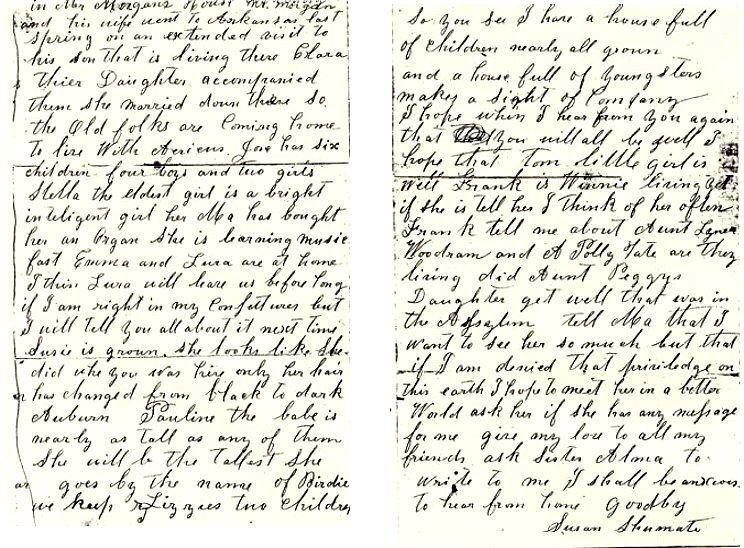 in Mr Morgans House Mr. Morgan
and his wife went to Arkansas last
spring on an extended visit to
his son that is living there Clara
thier Daughter accompanied
them she married down there so
the Old folks are Coming home
to live With Aericus. Joe has six
children four boys and two girls
Stella the eldest girl is a bright
inteligent girl her Ma has bought
her an Organ she is learning music
fast Emma and Lura are at home
I thin Lura will leave us before long
if I am right in my Confectures but
I will tell you all about it next time
Susie is grown. she looks like she
did whe you was hire only her hair
has changed from black to dark
Auburn Pauline the babe is
nearly as tall as any of them
She will be the Tallest she
goes by the name of Birdie
we keep Lizzies two children
So you see I have a house full
of children nearly all grown
and a house full of youngsters
makes a sight of Company
I hope when I hear from you again
that you will all be well I
hope that Tom little girl is
well Frank is Winnie living yet
if she is tell her I think of her often
Frank tell me about Aunt
Woodram and A Polly Tate are they
living did Aunt Peggys
Daughter get well that was in
the Assaylum tell Ma that I
want to see her so much but that
if I am denied that priviledge on
this earth I hope to meet her in a better
World ask her if she has any message
for me give my love to all my
friends ask Sister Alma to
write to me I shall be anxious
to hear from home Goodby
Susan Shumate